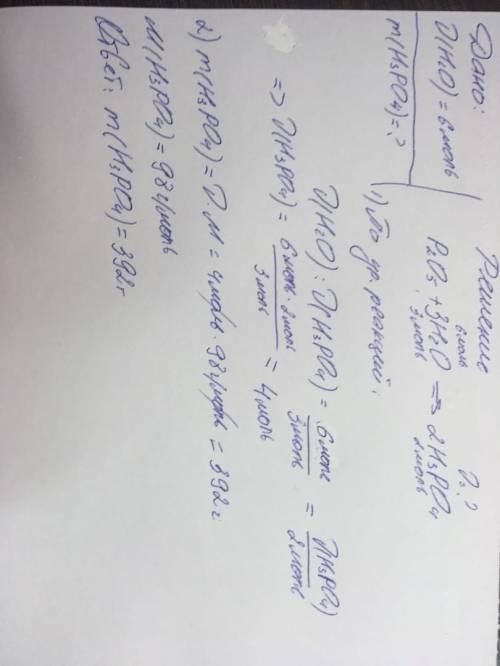 Дано:
ν(H₂O) = 6 моль
m(H₃PO₄) = ?
Решение
6 моль ν-?
P₂O₅ + 3H₂O => 2H₃PO₄
3 моль 2 моль
1) По ур. реакции:
ν(H₂O) : ν(H₃PO₄) = 6 моль / 3 моль = ν(H₃PO₄) / 2 моль
=> ν(H₃PO₄) = 6 моль · 2 моль / 3 моль = 4 моль
2) m(H₃PO₄) = ν · M = 4 моль · 98 г/моль = 392 г.
M(H₃PO₄) = 98 г/моль
Ответ: m(H₃PO₄) = 392 г